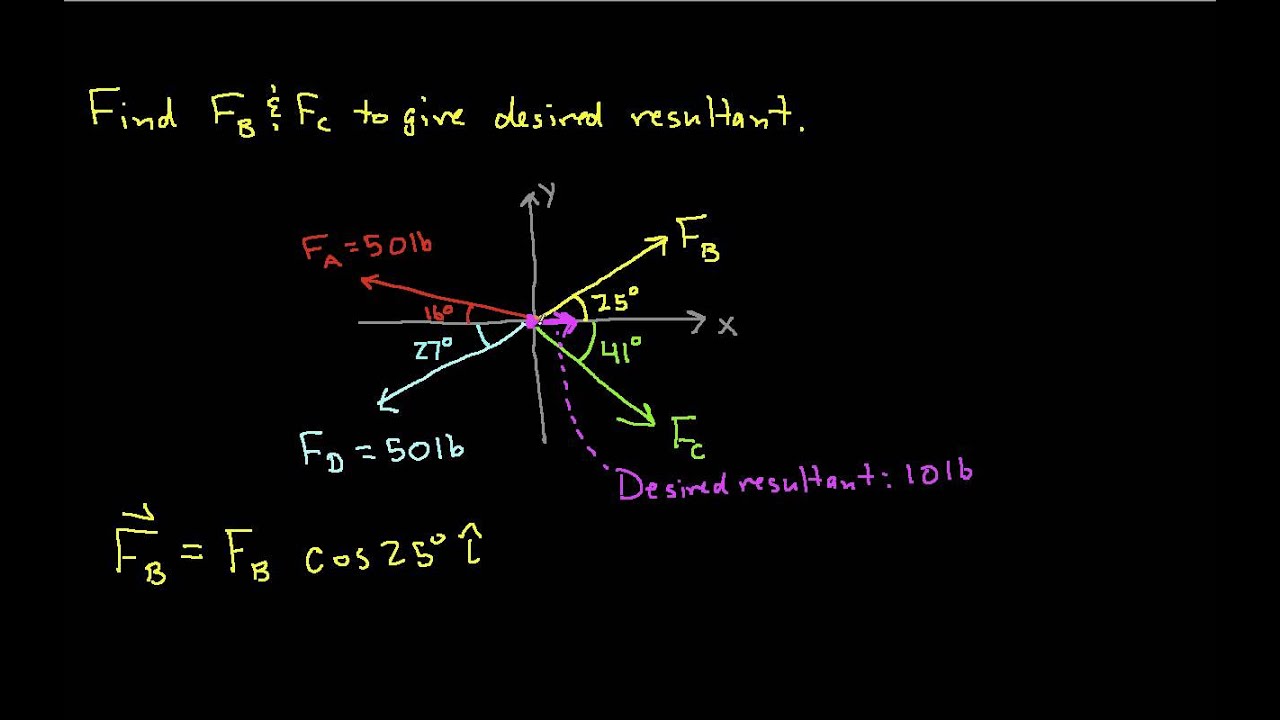 Find F_B & F_C to give desired resultant.
Y
F_B
F_A = 50lb
25°
16°
X
27°
41°
F_C
F_D = 50lb
Desired resultant: 10lb
F⃗_B = F_B cos25° î